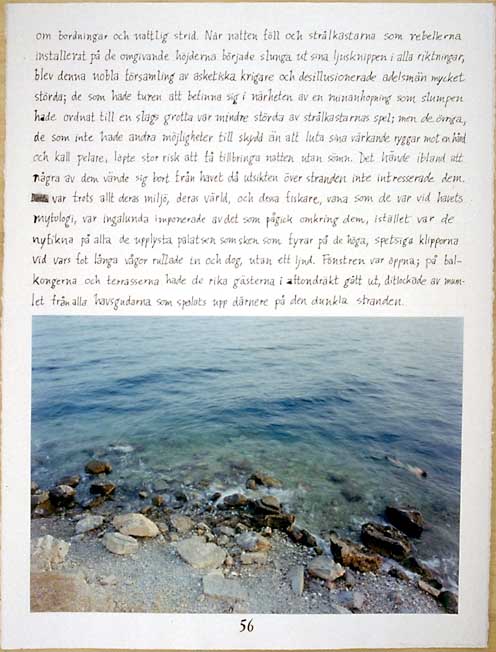 om bordningar och nattlig strid. När natten föll och strålkastarna som rebellerna
installerat på de omgivande höjderna började slunga ut sina ljusknippen i alla riktningar,
blev denna nobla församling av asketiska krigare och desillusionerade adelsmän mycket
störda; de som hade turen att befinna sig i närheten av en ruinanhopning som slumpen
hade ordnat till en slags grotta var mindre störda av strålkastarnas spel; men de övriga,
de som inte hade andra möjligheter till skydd än att luta sina värkande ryggar mot en hård
och kall pelare, löpte stor risk att få tillbringa natten utan sömn. Det hände ibland att
några av dem vände sig bort från havet då utsikten över stranden inte intresserade dem.
var trots allt deras miljö, deras värld, och dessa fiskare, vana som de var vid havets
mytologi, var ingalunda imponerade av det som pågick omkring dem, istället var de
nyfikna på alla de upplysta palatsen som sken som fyrar på de höga, spetsiga klipporna
vid vars fot långa vågor rullade in och dog, utan ett ljud. Fönstren var öppna; på bal-
kongerna och terrasserna hade de rika gästerna i aftondräkt gått ut, ditlockade av mum-
let från alla havsgudarna som spolats upp därnere på den dunkla stranden.
56